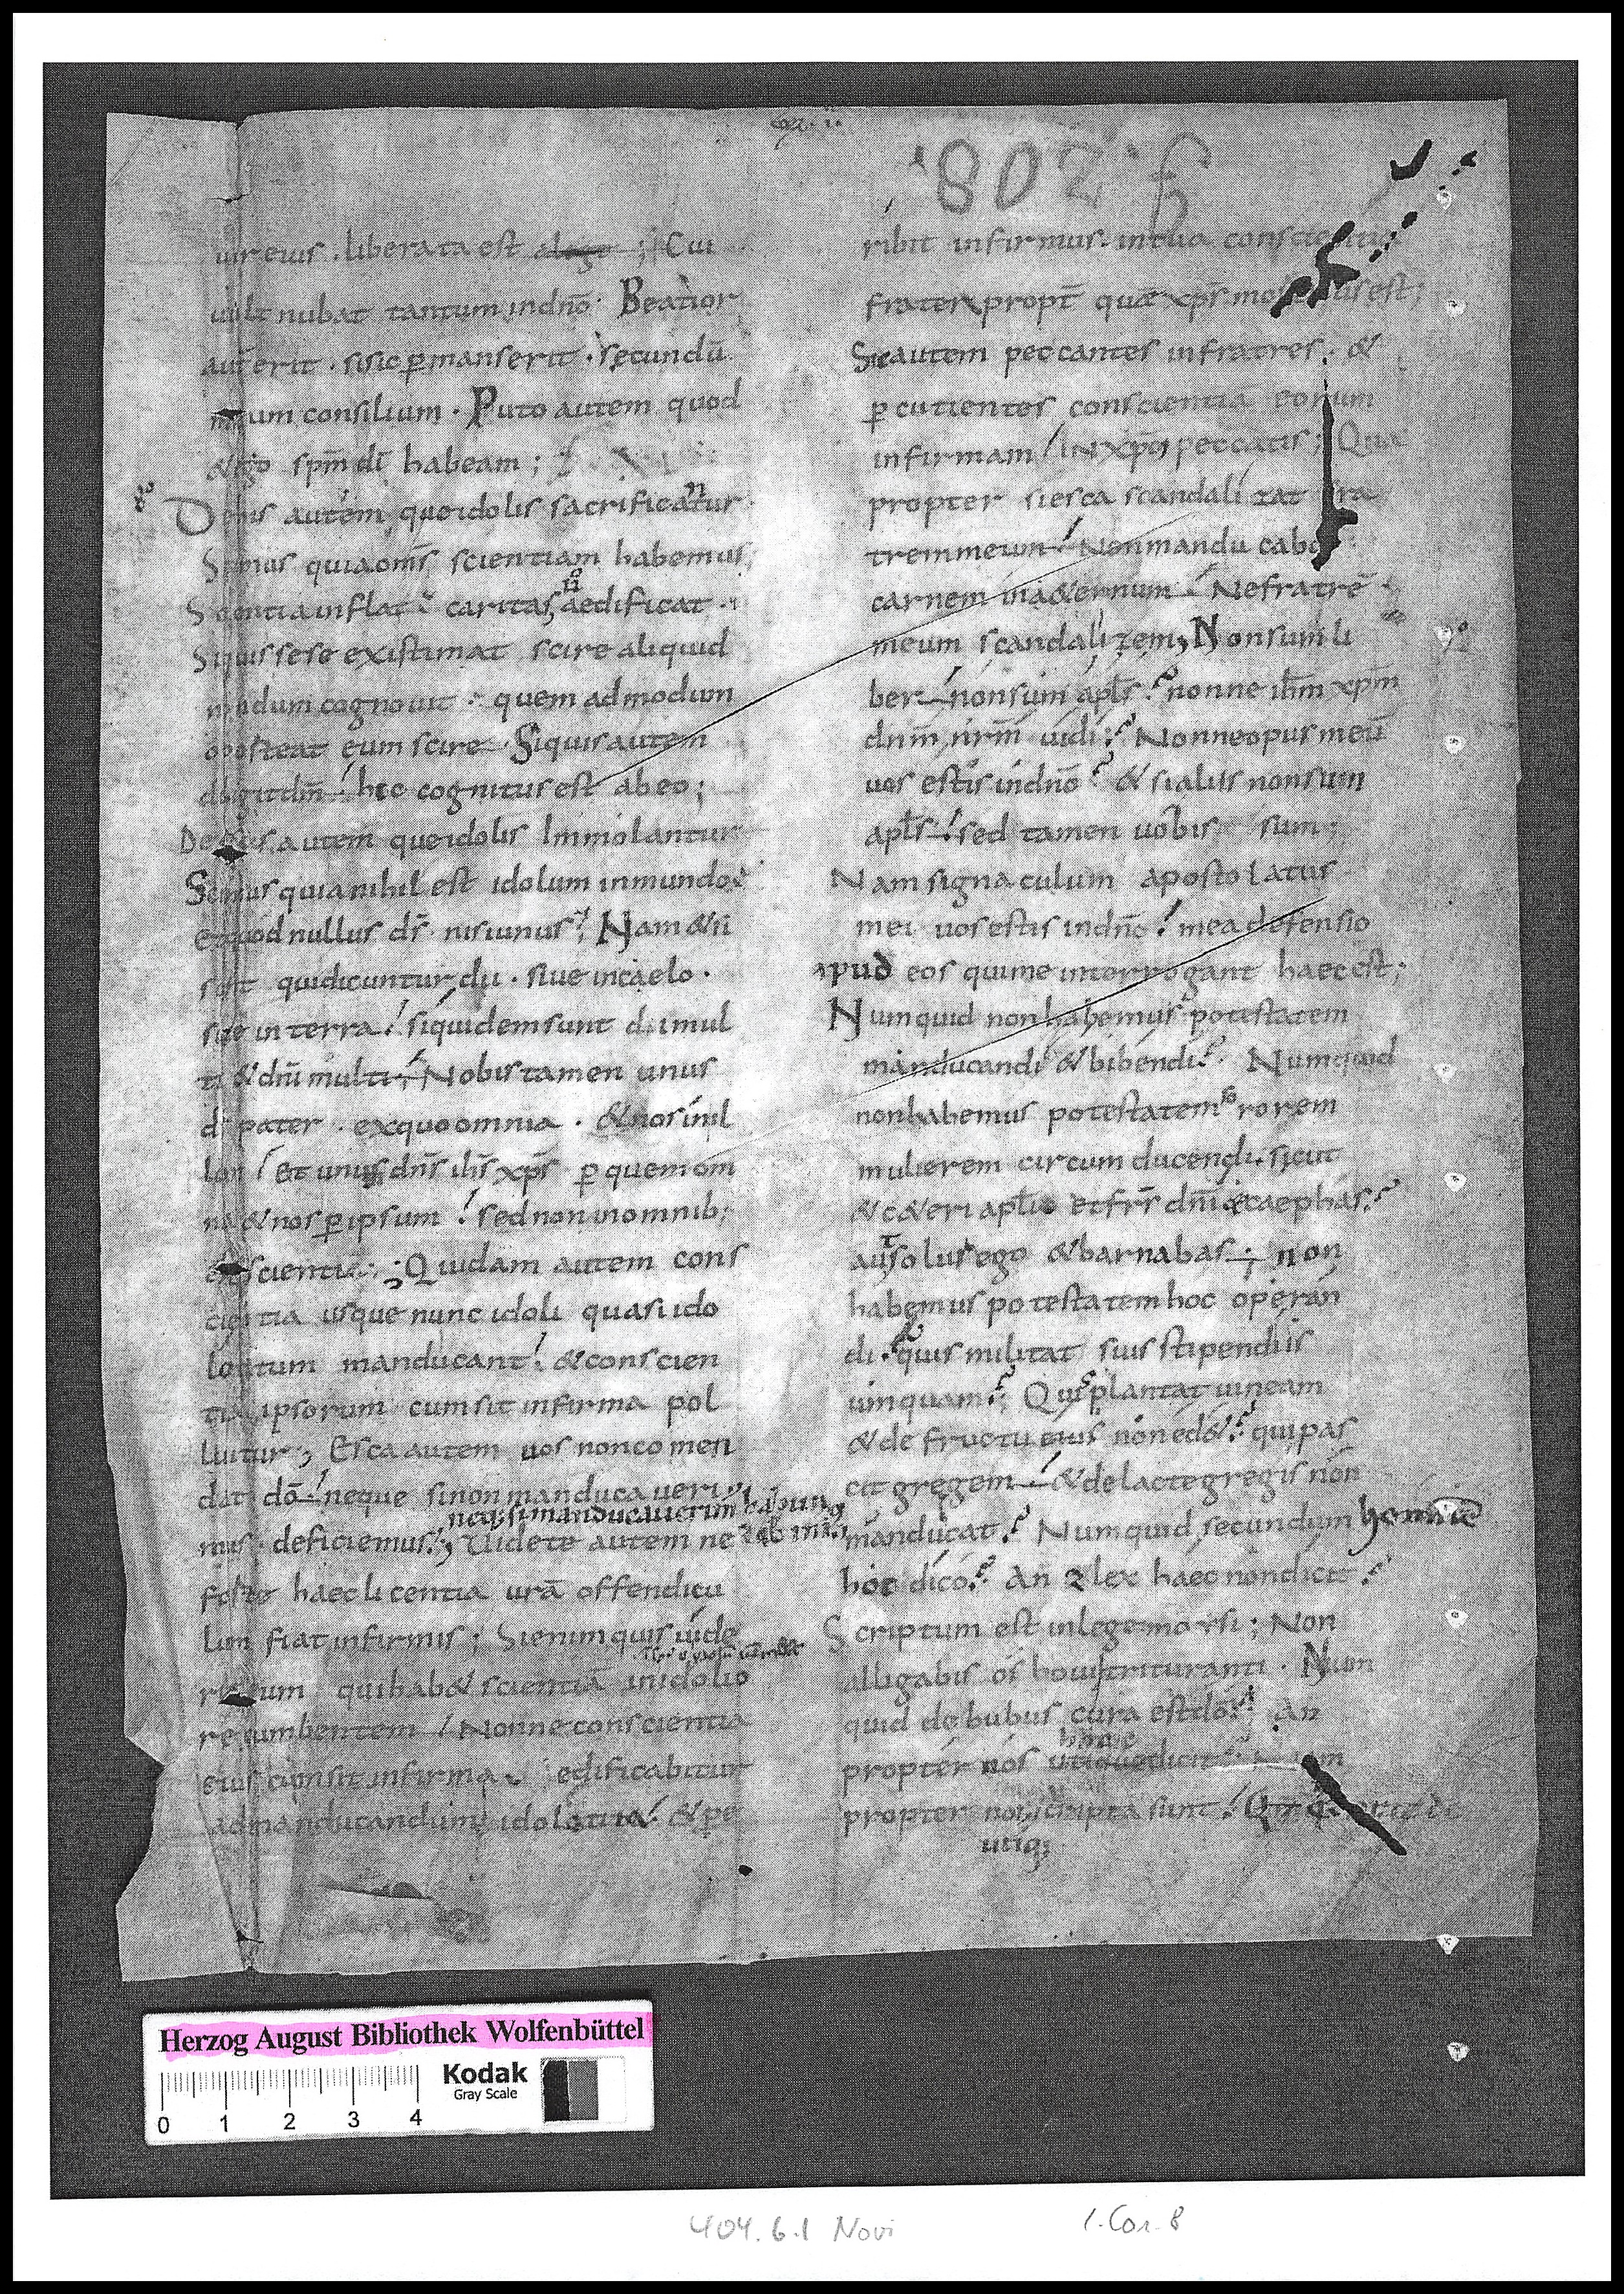 f. 208.
uir eius . liberata est alege ; Cui
uult nubat tantum indnō· Beatior
aut erit · sisic ꝑmanserit · secundū
meum consilium · Puto autem quod
&ego spm̄ dī habeam ;
8o
Demis autem que idolis sacrificatur
n
Scimus quia om̄s scientiam habemus;
Scientia inflat caritas aedificat
ū
Siquis se se existimat scire aliquid
nondum cognouit · quem ad modum
oporteat eum scire · Siquis autem
diligit dm̄ hec cognitus est ab eo ;
De escis autem que idolis Immolantur
Scimus quia nihil est idolum inmundo
Et quod nullus ds̄ nisi unus ; Nam & si
sunt qui dicuntur dii · siue in caelo ·
siue in terra siquidem sunt dii mul
ti & dnī multi ; Nobis tamen unus
ds̄ pater · ex quo omnia · & nos in il
lon Et unus dn̄s ihs̄ xps̄ ꝑ quem om
nia & nos ꝑ ipsum sed non in omnib;
est scientia ; Quidam autem cons
cientia usque nunc idoli quasi ido
loitum manducant & conscien
tia ipsorum cum sit infirma pol
luitur ; Esca autem uos non comen
dat dō neque si non manducaueri
neq; si manducauerim habun
mus deficiemus ; Uidete autem ne
dabim;
forte haec licentia urā offendicu
lum fiat infirmis ; Si enim quis uide
rit eum qui hab& scientiā in idolio
recumbentem Nonne conscientia
eius cum sit infirma edificabitur
ad manducandum idolatita & pe
ribit infirmus in tua conscientia
frater propt̄ quē xps̄ mortuus est ;
Sic autem peccantes in fratres · &
ꝑcutientes conscientiā eorum
infirmam IN xpō peccatis ; Qua
propter si esca scandalizat fra
trem meum Non manducabo
carnem in a&ernum Ne fratrē
meum scandalizem ; Non sum li
9o
ber non sum apls̄ nonne ihm̄ xpm̄
dnm̄ nrm̄ uidi Nonne opus meū
uos estis indnō & si aliis non sum
apls̄ sed tamen uobis sum ;
Nam signaculum apostolatus
mei uos estis indnō mea defensio
apud eos qui me interrogant haec est ;
Numquid non habemus potestatem
manducandi & bibendi Numquid
non habemus potestatem sororem
mulierem circumducendi sicut
& c&eri apl̄i et frs̄ dnī & caephas
aut solus ego & barnabas ; non
habemus potestatem hoc operan
di quis militat suis stipendiis
umquam ; Quis plantat uineam
& de fructu eius non ed& qui pas
cit gregem & de lacte gregis non
manducat Numquid secundum hominē
hoc dico An & lex haec non dicit
Scriptum est in lege morsi ; Non
alligabis os boui trituranti · Num
quid de bubus cura est dō An
propter nos utique dicit
hoc
propter nos scripta sunt
utiq;
Herzog August Bibliothek Wolfenbüttel
Kodak
Gray Scale
0 1 2 3 4
404.6.1 Novi
1. Cor. 8